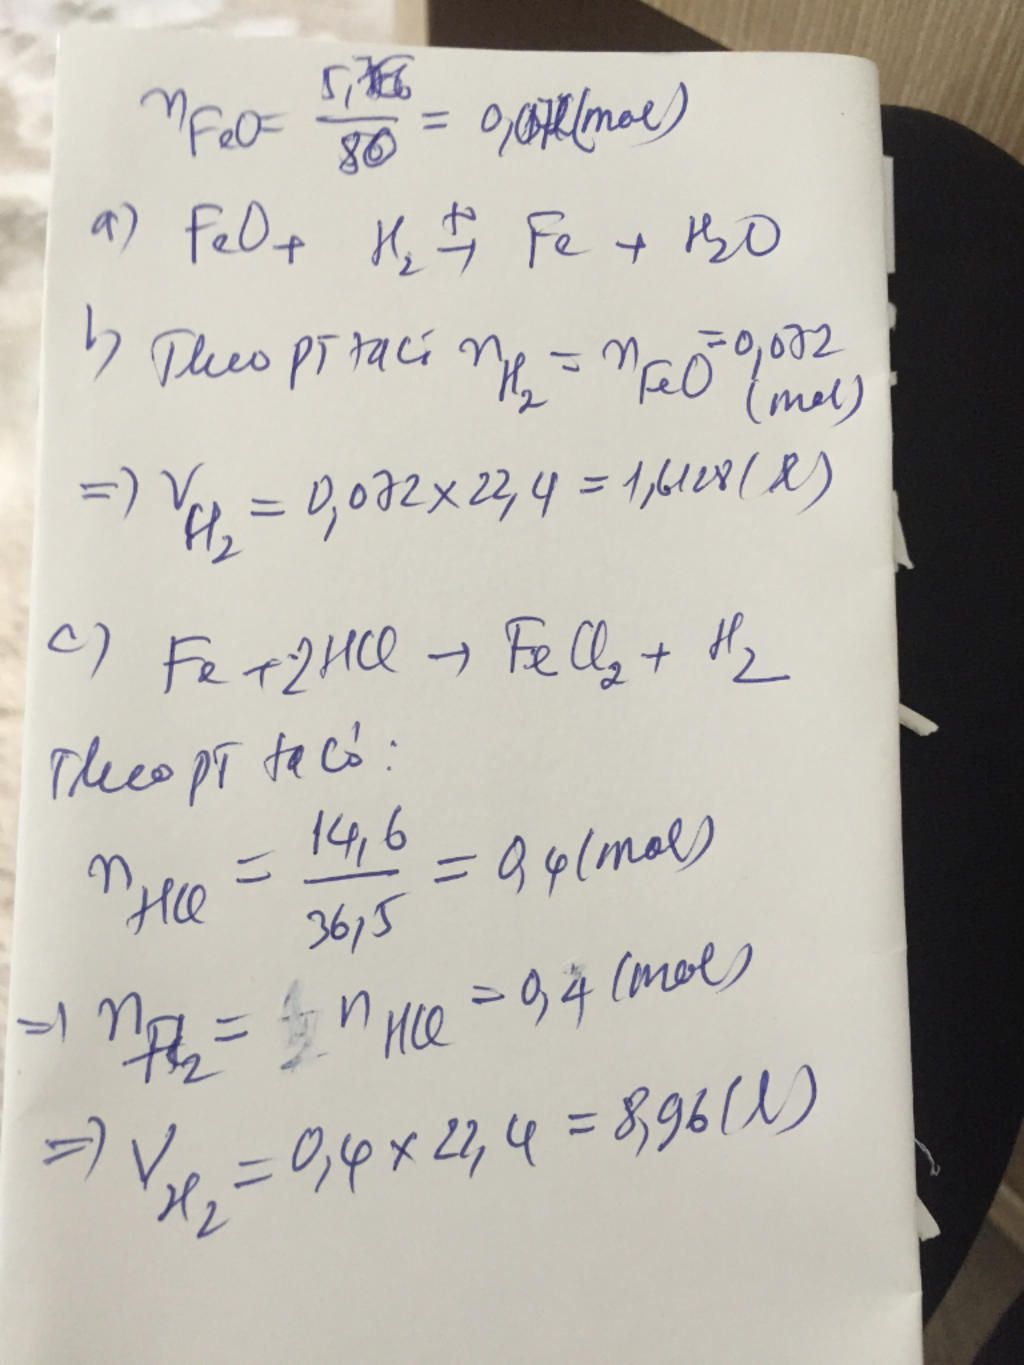 nFeO = 5,76/80 = 0,072 (mol)
a) FeO + H₂ →(t°) Fe + H₂O
b) Theo PT ta có nH₂ = nFeO = 0,072
(mol)
=> VH₂ = 0,072 x 22,4 = 1,6128 (l)
c) Fe + 2HCl → FeCl₂ + H₂
Theo PT ta có:
nHCl = 14,6/36,5 = 0,4 (mol)
=> nH₂ = nHCl = 0,4 (mol)
=> VH₂ = 0,4 x 22,4 = 8,96 (l)